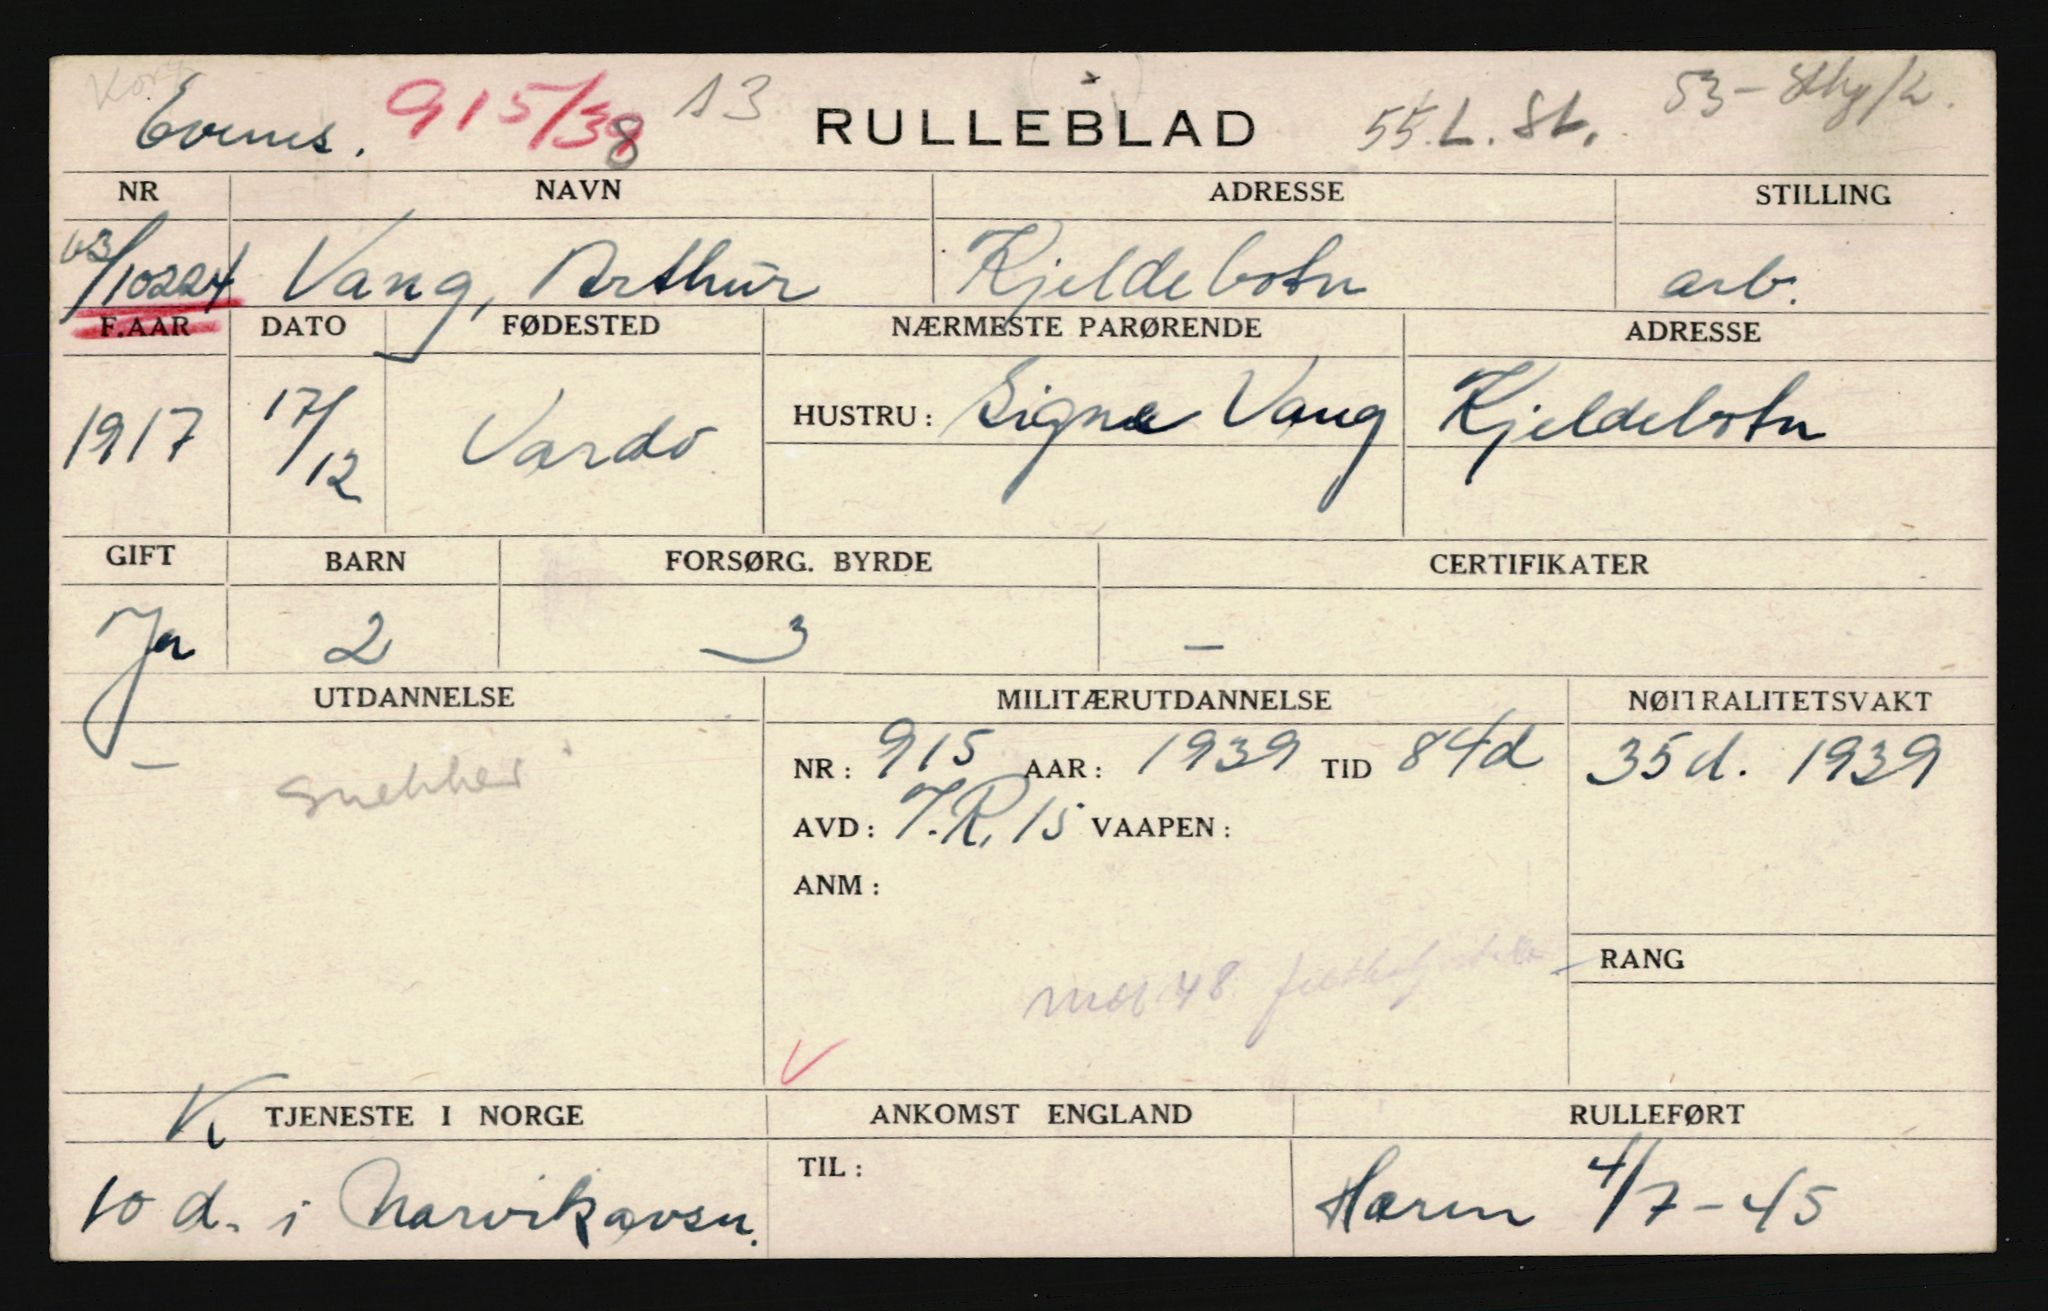 Evenes. 915/38 A3 RULLEBLAD 55. L. St. 53-
NR NAVN ADRESSE STILLING
63/10224 Vang, Arthur Kjeldebotn arb.
F.AAR DATO FØDESTED NÆRMESTE PARØRENDE ADRESSE
1917 17/12 Vardö HUSTRU: Signe Vang Kjeldebotn
GIFT BARN FORSØRG. BYRDE CERTIFIKATER
Ja 2 3 –
UTDANNELSE MILITÆRUTDANNELSE NØITRALITETSVAKT
– snekker NR: 915 AAR: 1939 TID 84d 35d. 1939
AVD: I.R. 15 VAAPEN:
ANM:
RANG
mob 48
V
K TJENESTE I NORGE ANKOMST ENGLAND RULLEFØRT
10 d. i Narvikavsn. TIL: Hæren 4/7-45